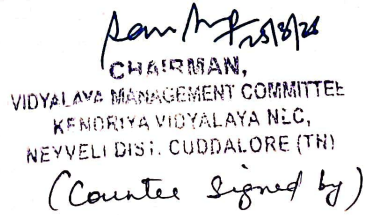 25/8/26
CHAIRMAN,
VIDYALAYA MANAGEMENT COMMITTEE
KENDRIYA VIDYALAYA NLC,
NEYVELI DIST. CUDDALORE (TN)
(Counter Signed by)